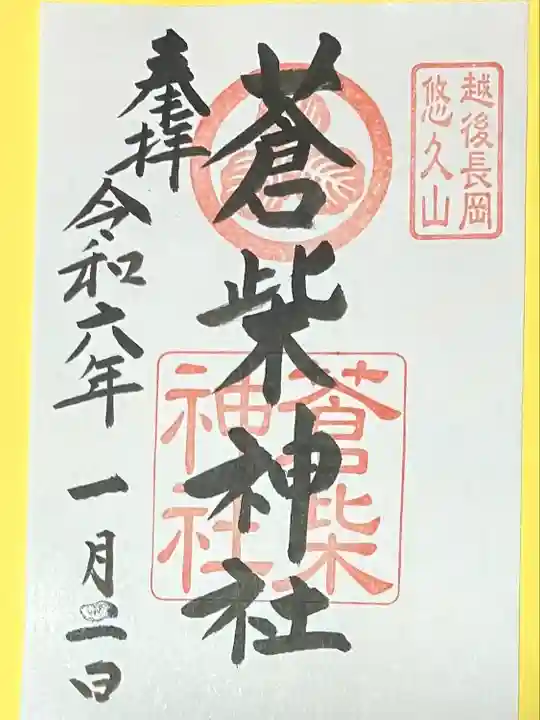 越後長岡
悠久山
蒼柴神社
蒼柴
神社
奉拝
令和六年
一月二日